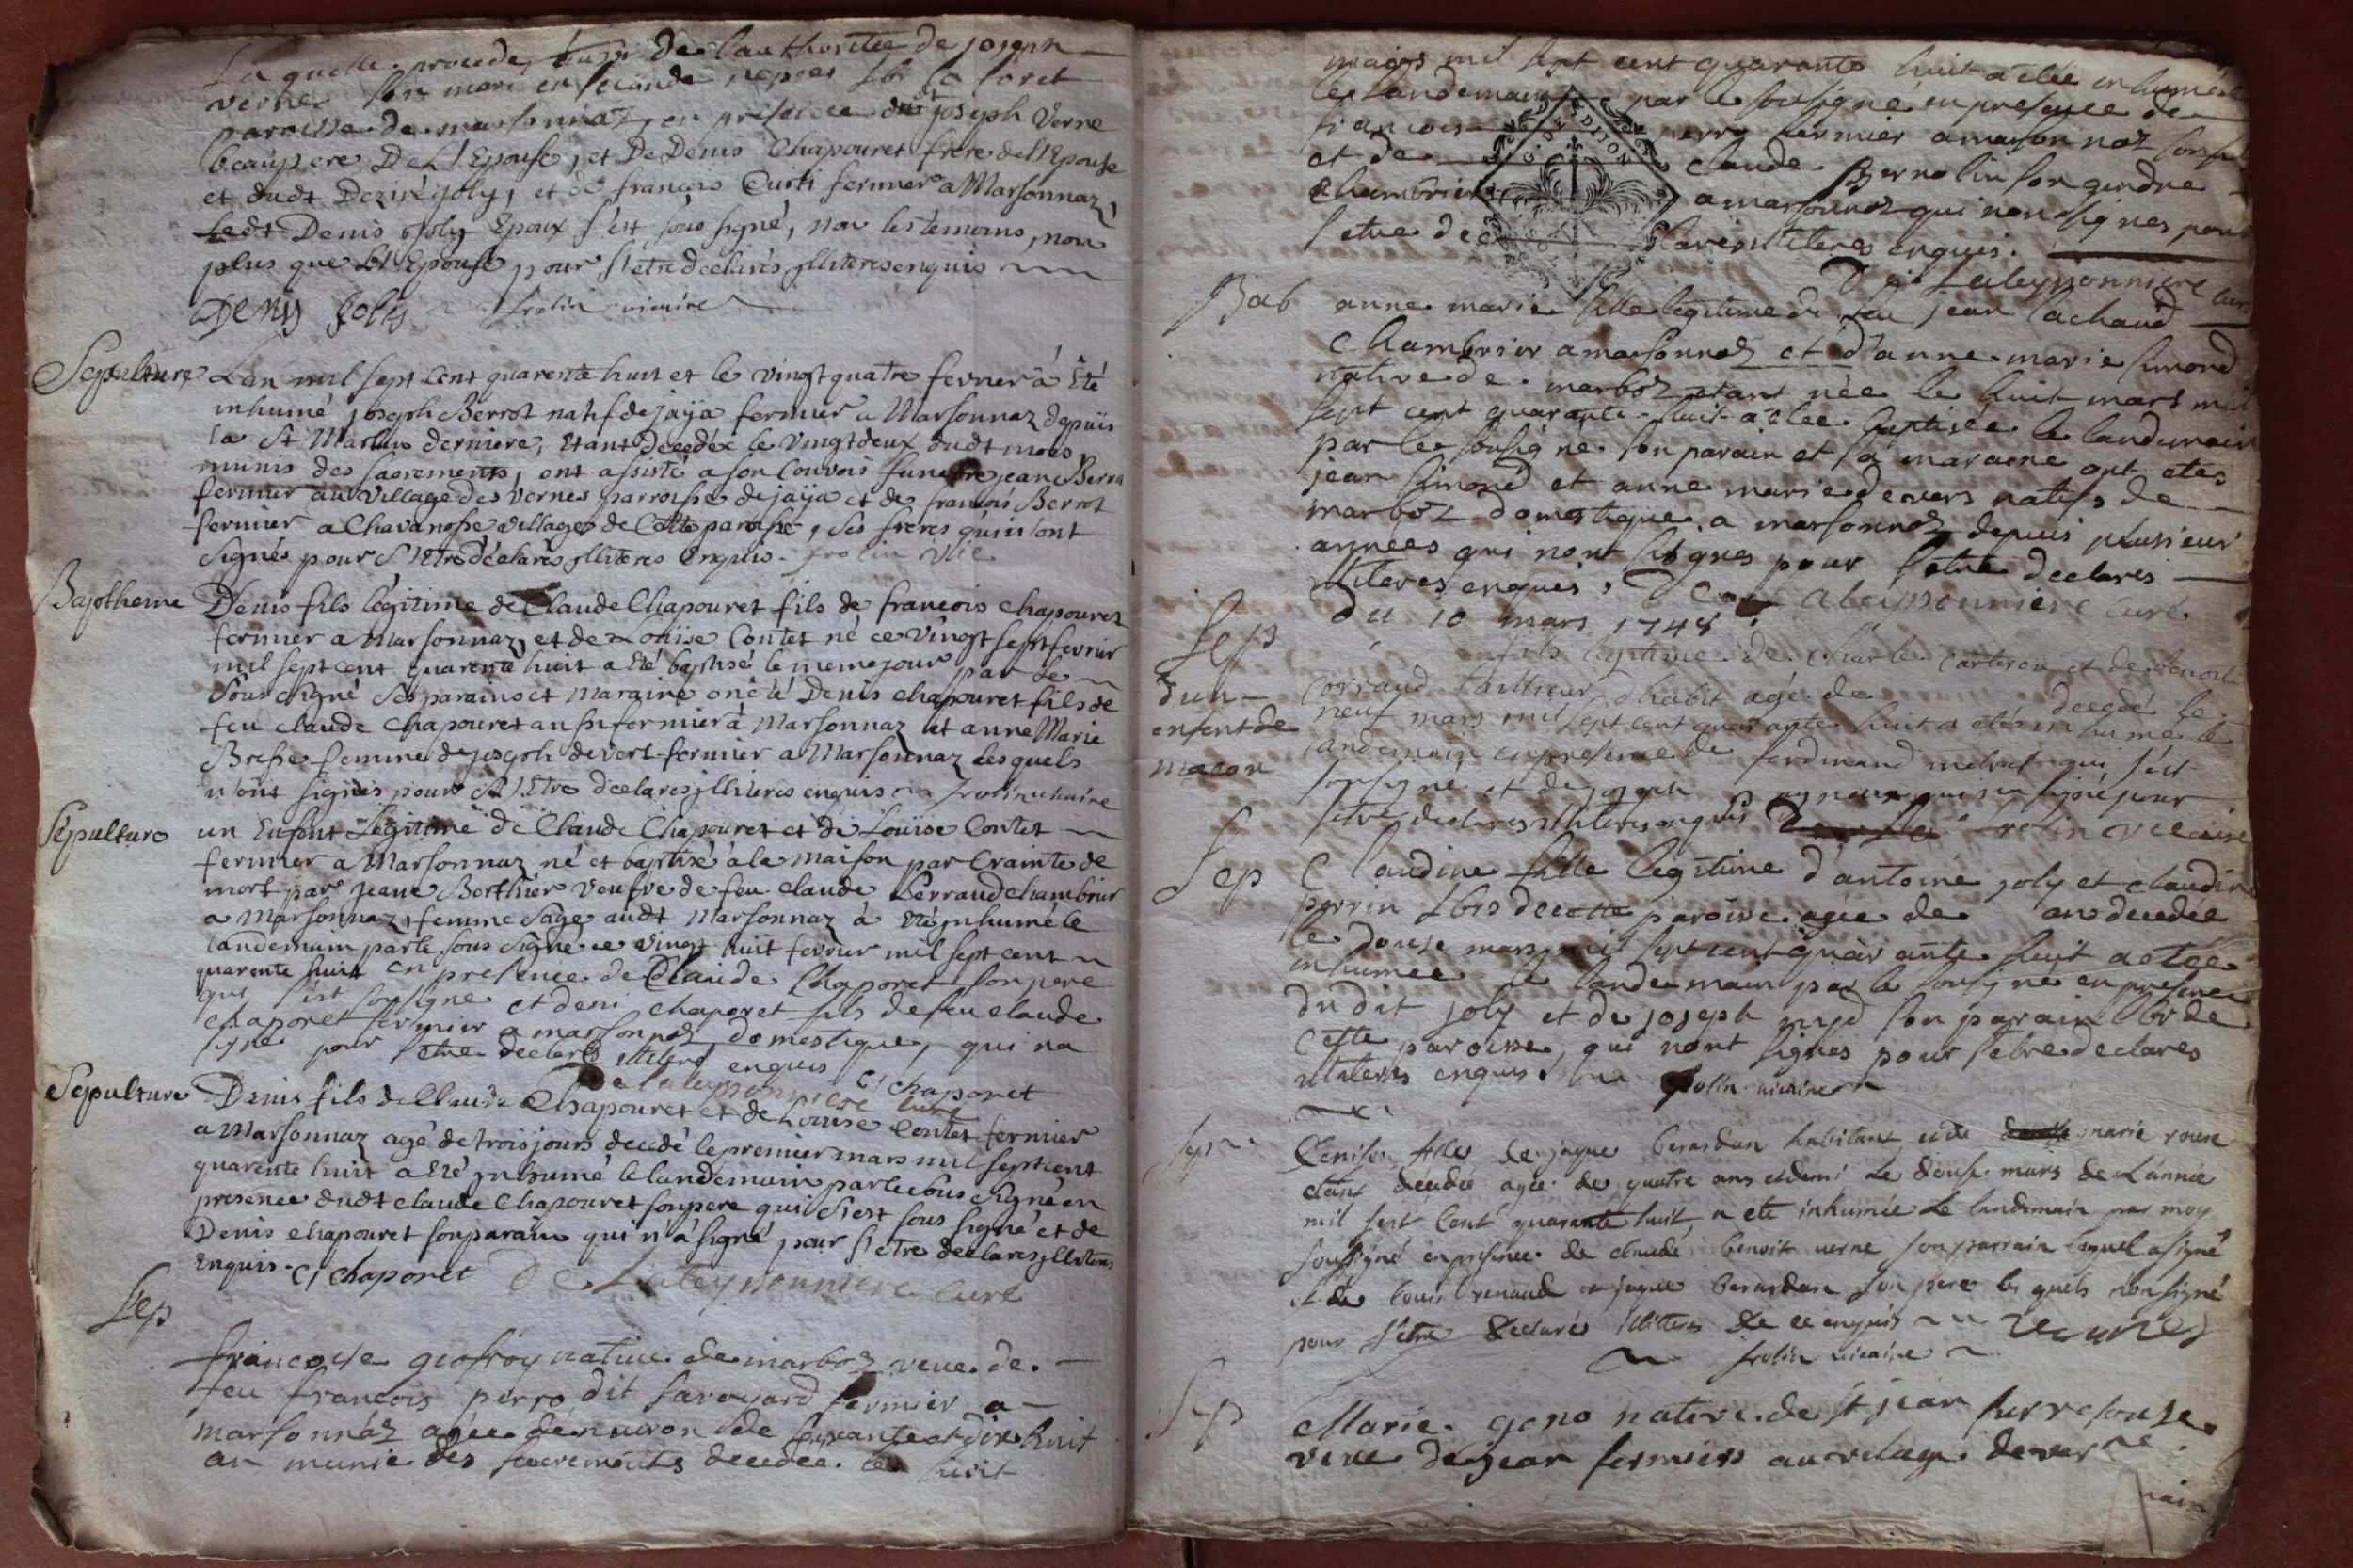 La quelle procede, aussi De lauthoritee de joseph
verne son mari en seconde nopces lbr la foret
paroisse de marsonnaz, en présence dudt joseph Verne
beaupere De L'Epouse, et De Denis Chapouret frere de l'Epouse
et dudt Deziré joly, et de francois Curti fermier a Marsonnaz,
ledt Denis Joly Epoux s'est sous signé, non les temoins, non
plus que l'Epouse, pour s'etre declarés jlliteres enquis
Denis Joly frolin vicaire
Sepulture
Lan mil sept Cent quarente huit et le vingt quatre fevrier à Eté
inhumé joseph Berrot natif de jaÿa fermier a Marsonnaz depuis
la St Martin derniere, Etant decedéz le vingt deux dudt mois
munis des sacrements, ont assisté a son Convois funebre jean Berro
fermier au village des vernes parroisse de jaÿa et de francois Berrot
fermier a Chavanosse village de Cette paroisse, ses freres qui n'ont
Signés pour S'Etre déclarés jlliteres Enquis. frolin vice
Baptheme
Denis fils légitime de Claude Chapouret fils de francois Chapouret
fermier a Marsonnaz, et de Loüise Contet né ce vingt sept fevrier
mil sept cent quarente huit a Eté baptisé le meme jour par le
Sous Signé Ses parains et maraine on été Denis chapouret fils de
feu claude Chapouret aussi fermier à Marsonnaz et anne Marie
Bresse femme de joseph devert fermier a Marsonnaz lesquels
n'ont signés pour S'Etre declares jlliteres enquis frolin vicaire
Sépulture
un Enfant Légitime de Claude Chapouret et de Loüise Contet
fermier a Marsonnaz né et baptisé à la maison par Crainte de
mort par jeane Borthier veufve de feu claude Perraud chambrier
a Marsonnaz, femme sage audt Marsonnaz à Eté jnhumé le
landemain par le sous signé ce vingt huit fevrier mil sept cent
quarente huit en presence de Claude Chaporet son pere
qui s'est sousigné et deni chaporet fils de feu claude
chaporet fermier a marsonnaz domestique, qui na
signé pour setre declaré illiteré enquis
De laleyssonniere curé Cl chaporet
Sepulture
Denis fils de Claude Chapouret et de Louise Contet fermier
a Marsonnaz agé de trois jours decedé le premier mars mil sept cent
quarente huit a Eté jnhumé le landemain par le sous signé en
presence dudt claude Chapouret son pere qui s'est sous signé et de
Denis chapouret son parain qui n'à signé pour s'etre declares jlliteres
Enquis. Cl chaporet De Laleyssonniere curé
Sep
francoise giofroy native de marboz veve de
feu francois perro dit savoyard fermier a
marsonnáz agée dénviron de soixante et dix huit
an munie des sacrements decedee le huit
mars mil sept cent quarante huit a etée inhumée
le landemain par le sousigné en presence de
francois perro fermier a marsonnoz son fils
et de claude Bernolin son gendre
Chambrier a marsonnoz qui non signes pour
setre declares illiteres enquis.
De Laleyssonniere curé
Bab
anne marie fille legitime de feu jean lachaud
Chambrier a marsonnoz et d'anne marie simond
native de marboz etant née le huit mars mil
sept cent quarante huit a etee baptisée le landemain
par le sousigné son parain et sa maraine ont etes
jean simond et anne marie devers natifs de
marboz domestique a marsonnoz depuis plusieur
années qui nont signes pour setre declares
illiteres enquis. De Laleyssonniere curé
Sep
Dun
enfent de
macon
Du 10 mars 1748
fils legitime de Charle carteron et de benoite
corraud tailleur dhabit agé de decedé le
neuf mars mil sept cent quarante huit a etés inhumé le
landemain en presence de ferdinand qui sest
sousigné et de joseph qui na signé pour
setre declares illiteres enquis frolin vicaire
Sep
Claudine fille legitime d'antoine joly et claudine
perrin lbrs de cette paroisse agee de ans decedée
le douse mars mil sept cent quarante huit a etée
inhumee le landemain par le sousigné en presence
du dit joly et de joseph son parain lbr de
cette paroisse, qui nont signes pour setre declares
illiteres enquis. frolin vicaire
Sep
Denise fille de jaque berardan habitant et de marie roux
etant décédée agée de quatre ans et demi le douse mars de L'année
mil sept cent quarante huit, a eté inhumée le landemain par moy
soussigné en presence de claude benoit verne son parrain lequel a signé
et de louis renaud et jaque berardan son pere les quels n'on signé
pour s'etre déclarés illiteres de ce enquis
frolin vicaire
Sep
Marie geno native de st jean sur resouse
veve de jean fermiers au vilage de